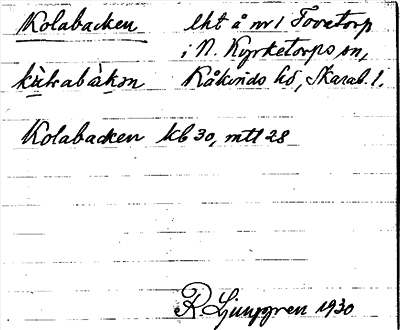 Kolabacken lht å nr 1 Tovetorp
i N. Kyrketorps sn,
kὰlrabὰkən Kåkinds hd, Skarab. l.
Kolabacken kb 30, mtl 28
R Ljunggren 1930